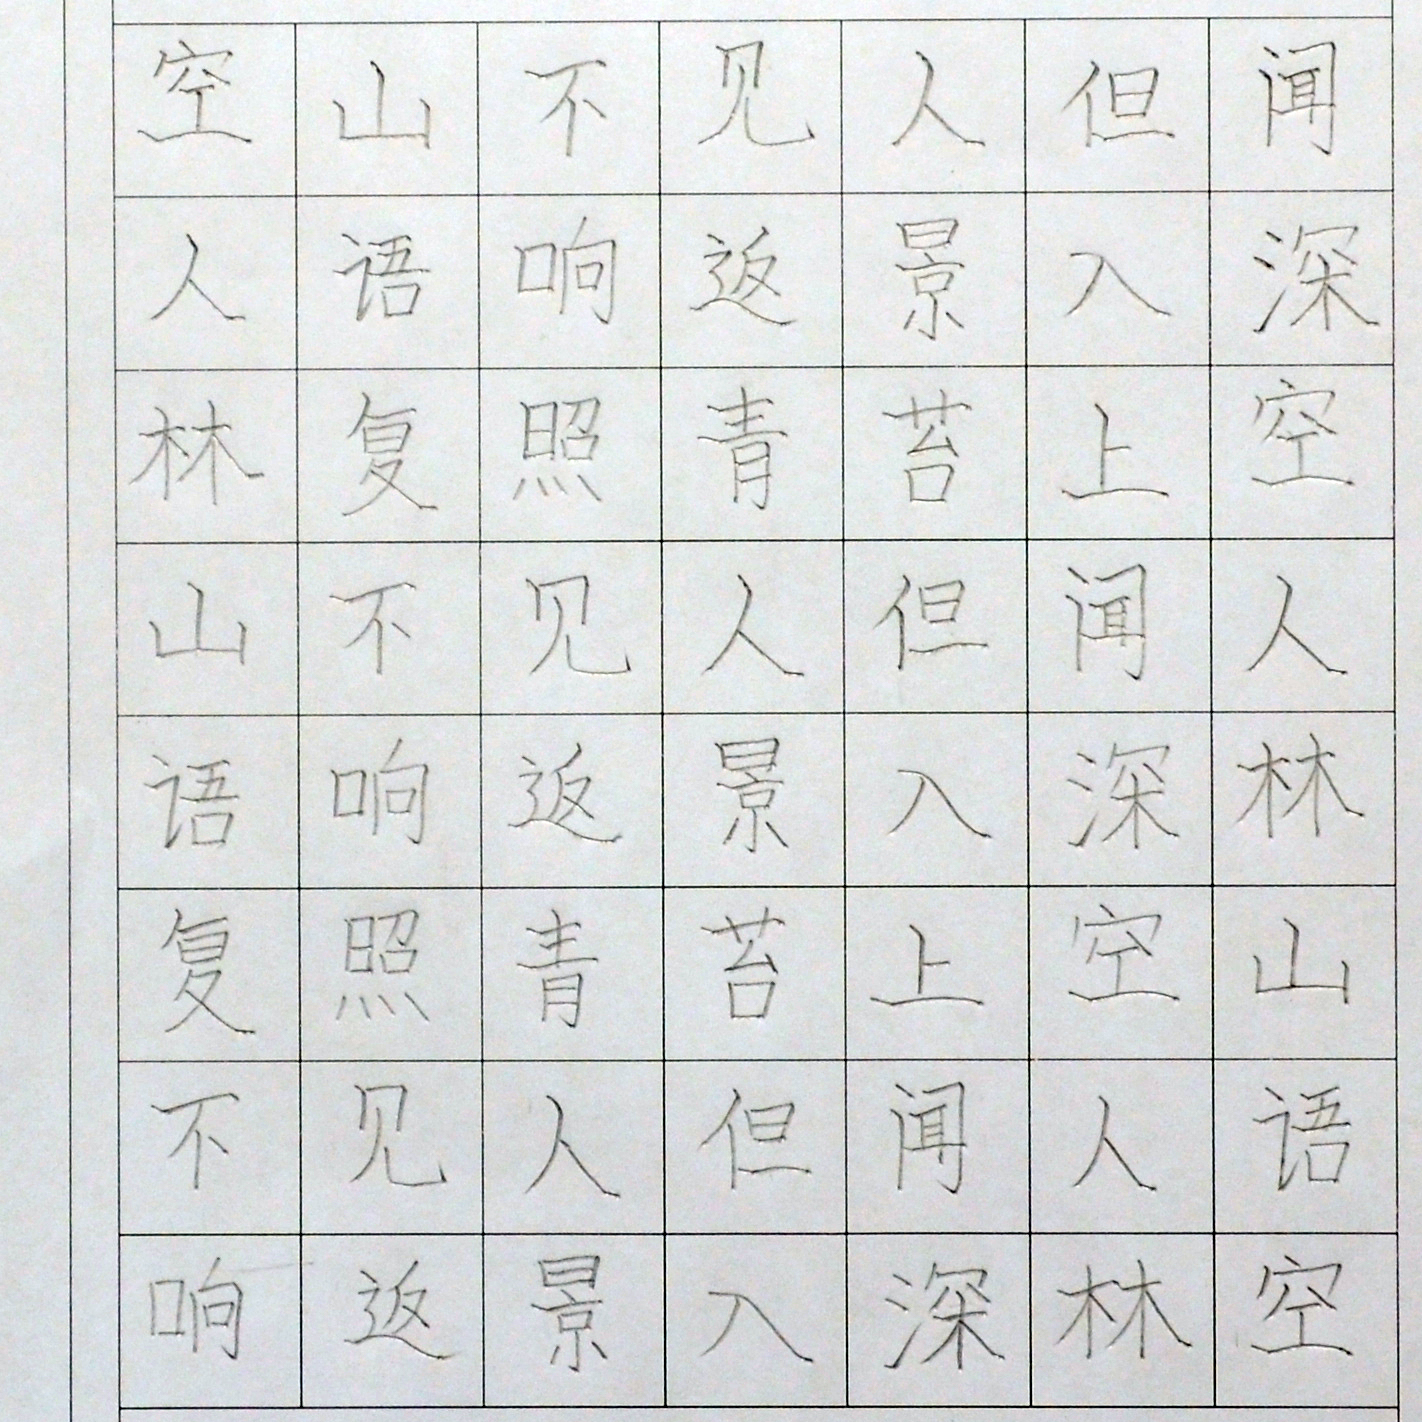 空山不见人但闻
人语响返景入深
林复照青苔上空
山不见人但闻人
语响返景入深林
复照青苔上空山
不见人但闻人语
响返景入深林空